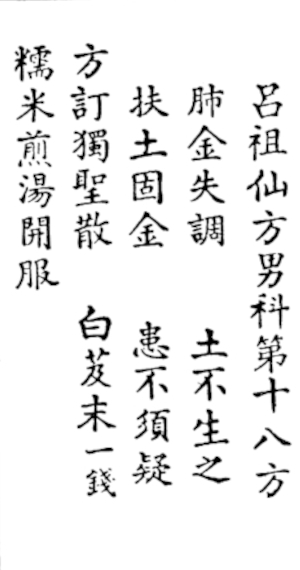 呂祖仙方男科第十八方
肺金失調　土不生之
扶土固金　患不須疑
方訂獨聖散　白芨末一錢
糯米煎湯開服